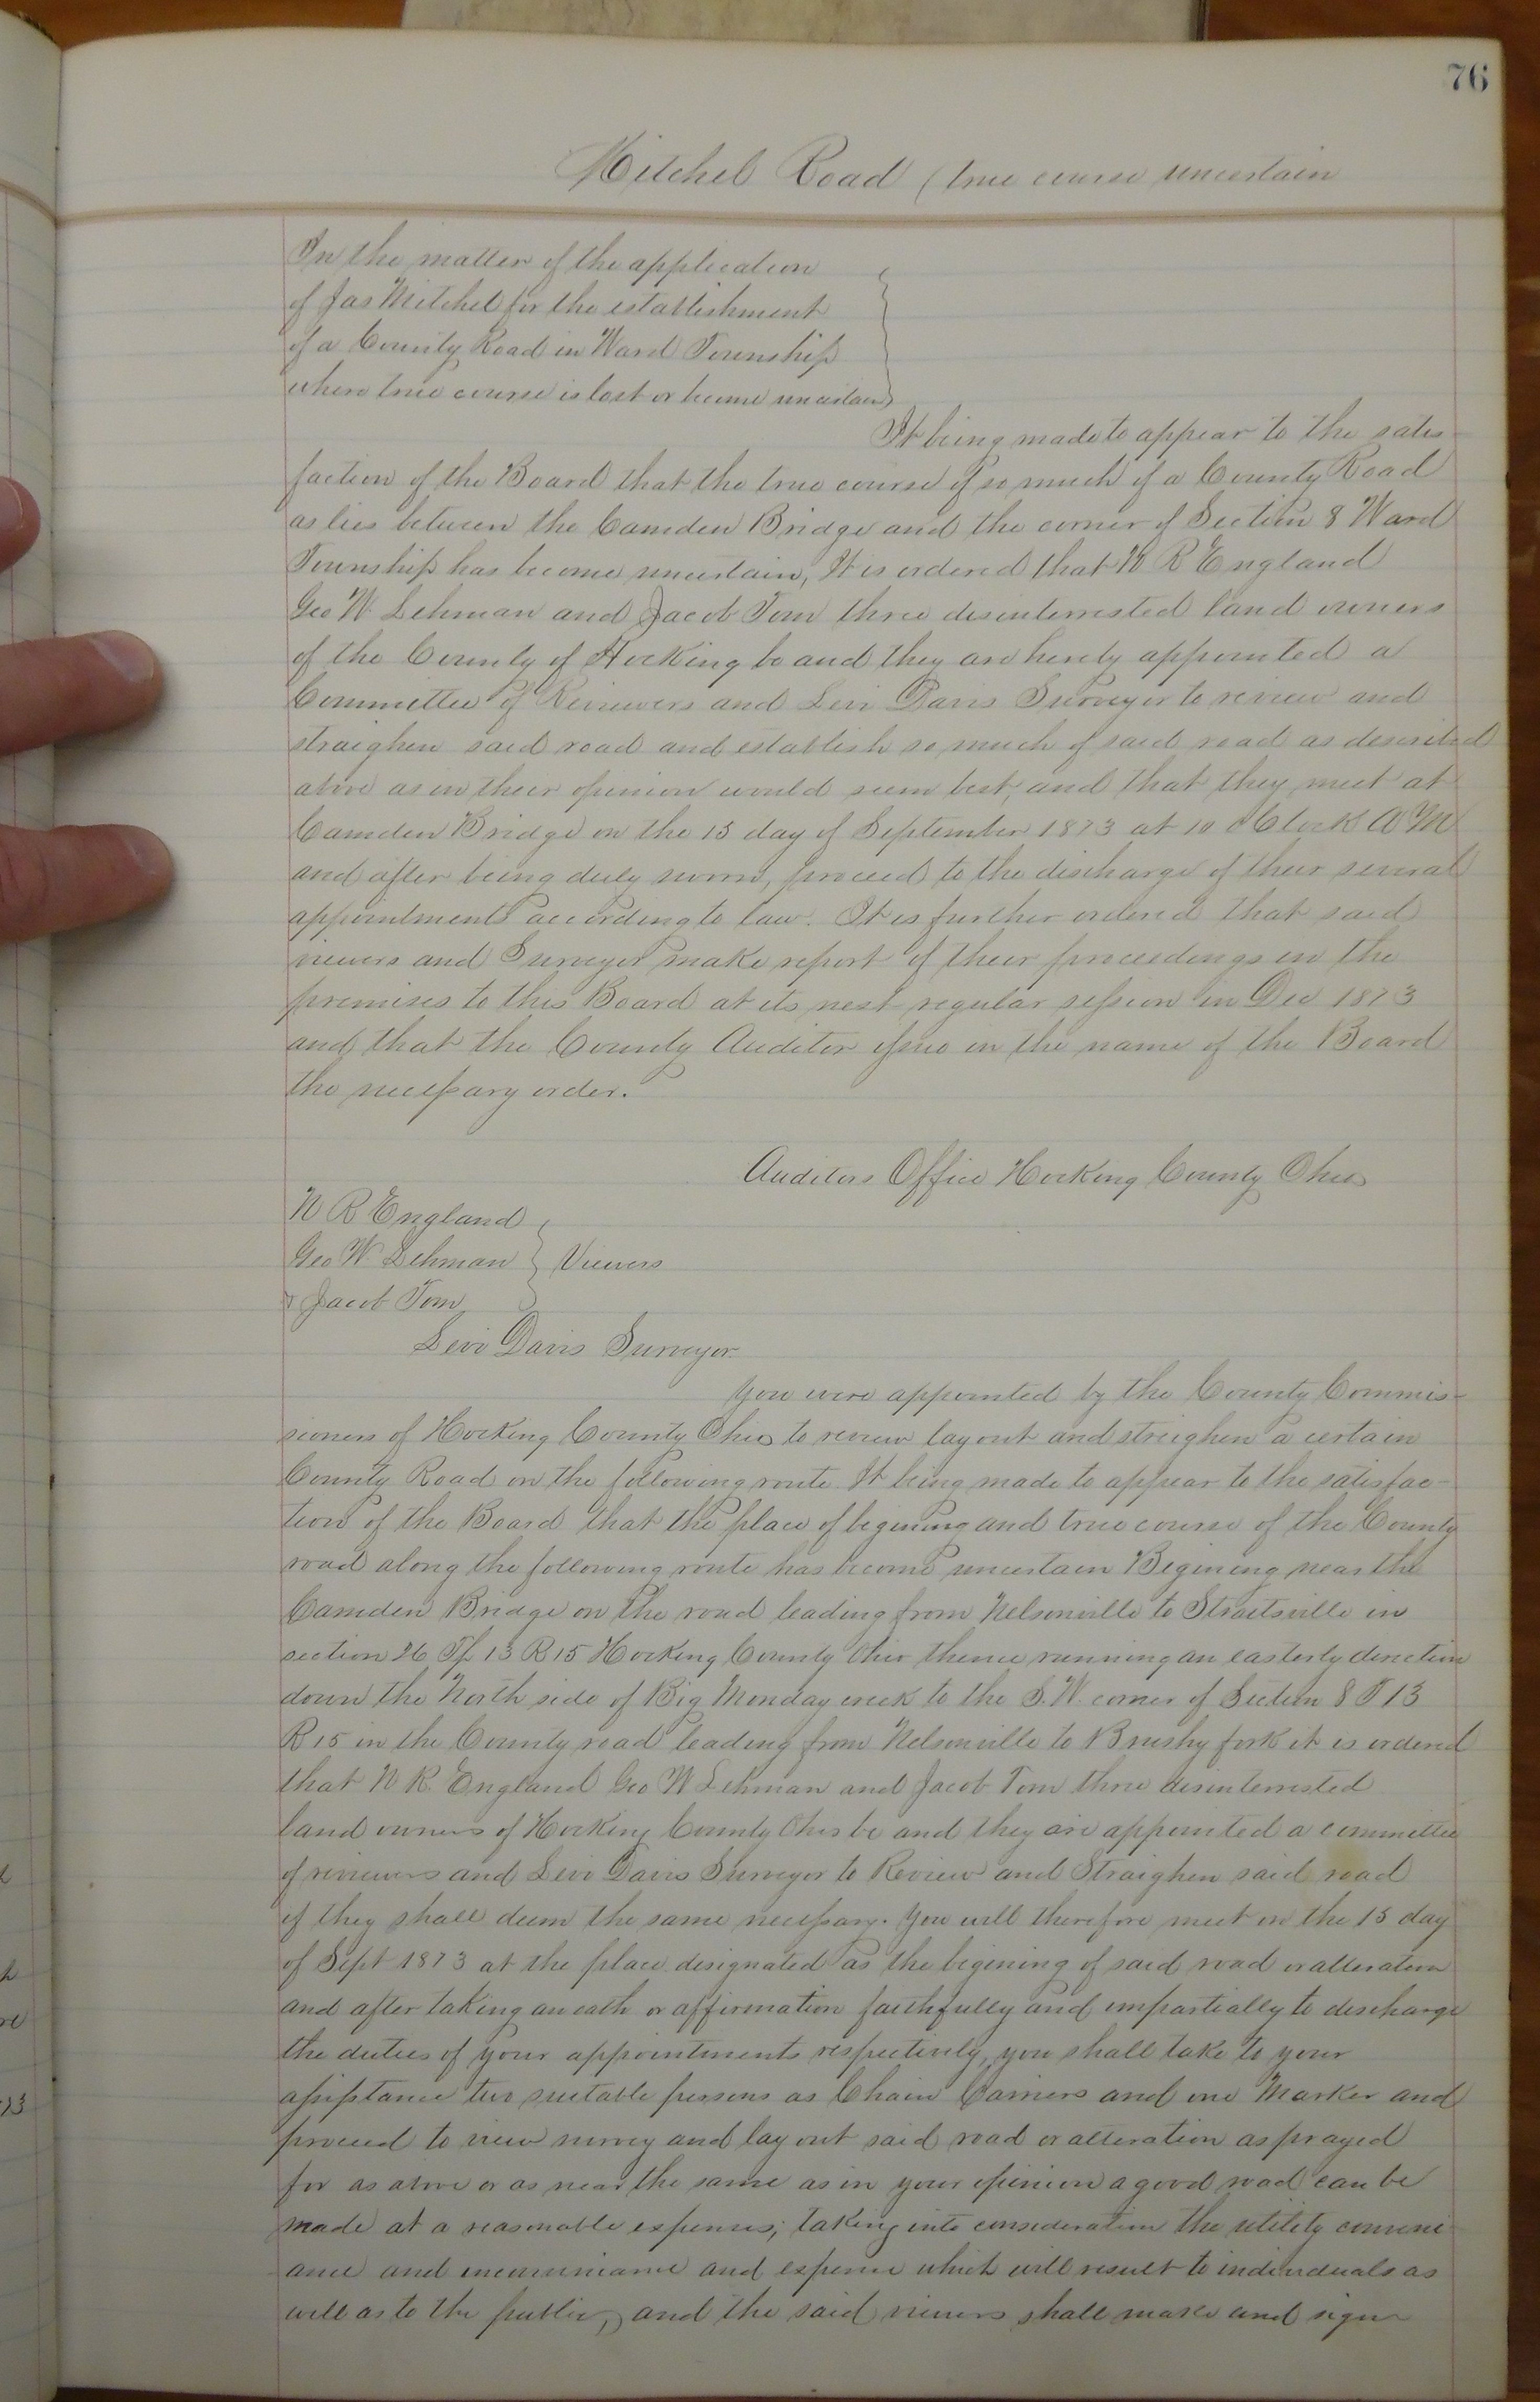 76
Mitchel Road (true course uncertain
In the matter of the application
of Jas Mitchel for the establishment
of a County Road in Ward Township
where true course is lost or become uncertain
It being made to appear to the satis-
faction of the Board that the true course of so much of a County Road
as lies between the Camden Bridge and the corner of Section 8 Ward
Township has become uncertain, It is ordered that N R England
Geo W. Lehman and Jacob Tom three disinterrested land owners
of the County of Hocking be and they are hereby appointed a
Committee of Reviewers and Levi Davis Surveyor to review and
straighen said road and establish so much of said road as described
above as in their opinion would seem best, and that they meet at
Camden Bridge on the 15 day of September 1873 at 10 oClock A M
and after being duly sworn, proceed to the discharge of their several
appointments according to law. It is further ordered that said
viewers and Surveyor make report of their proceedings in the
premises to this Board at its next regular session in Dec 1873
and that the County Auditor issue in the name of the Board
the necessary order.
Auditors Office Hocking County Ohio
N R England
Geo W. Lehman } Viewers
& Jacob Tom
Levi Davis Surveyor.
You were appointed by the County Commis-
sioners of Hocking County Ohio to review lay out and streighen a certain
County Road on the following route It being made to appear to the satisfac-
tion of the Board that the place of begining and true course of the County
road along the following route has become uncertain Begining near the
Camden Bridge on the road leading from Nelsonville to Straitsville in
section 26 Tp 13 R 15 Hocking County Ohio thence running an easterly direction
down the North side of Big Monday creek to the S.W. corner of Section 8 T 13
R 15 in the County road leading from Nelsonville to Brushy fork it is ordered
that N R England Geo W Lehman and Jacob Tom three disinterrested
land owners of Hocking County Ohio be and they are appointed a committee
of reviewers and Levi Davis Surveyor to Review and Straighen said road
if they shall deem the same necessary. You will therefore meet on the 15 day
of Sept 1873 at the place designated as the begining of said road or alteration
and after taking an oath or affirmation faithfully and impartially to discharge
the duties of your appointments respectively, you shall take to your
assistance two suitable persons as Chain Carriers and one Marker and
proceed to view survey and lay out said road or alteration as prayed
for as above or as near the same as in your opinion a good road can be
made at a reasonable expense; taking into consideration the utility conveni
ance and inconveniance and expense which will result to individuals as
well as to the public, and the said viewers shall make and sign